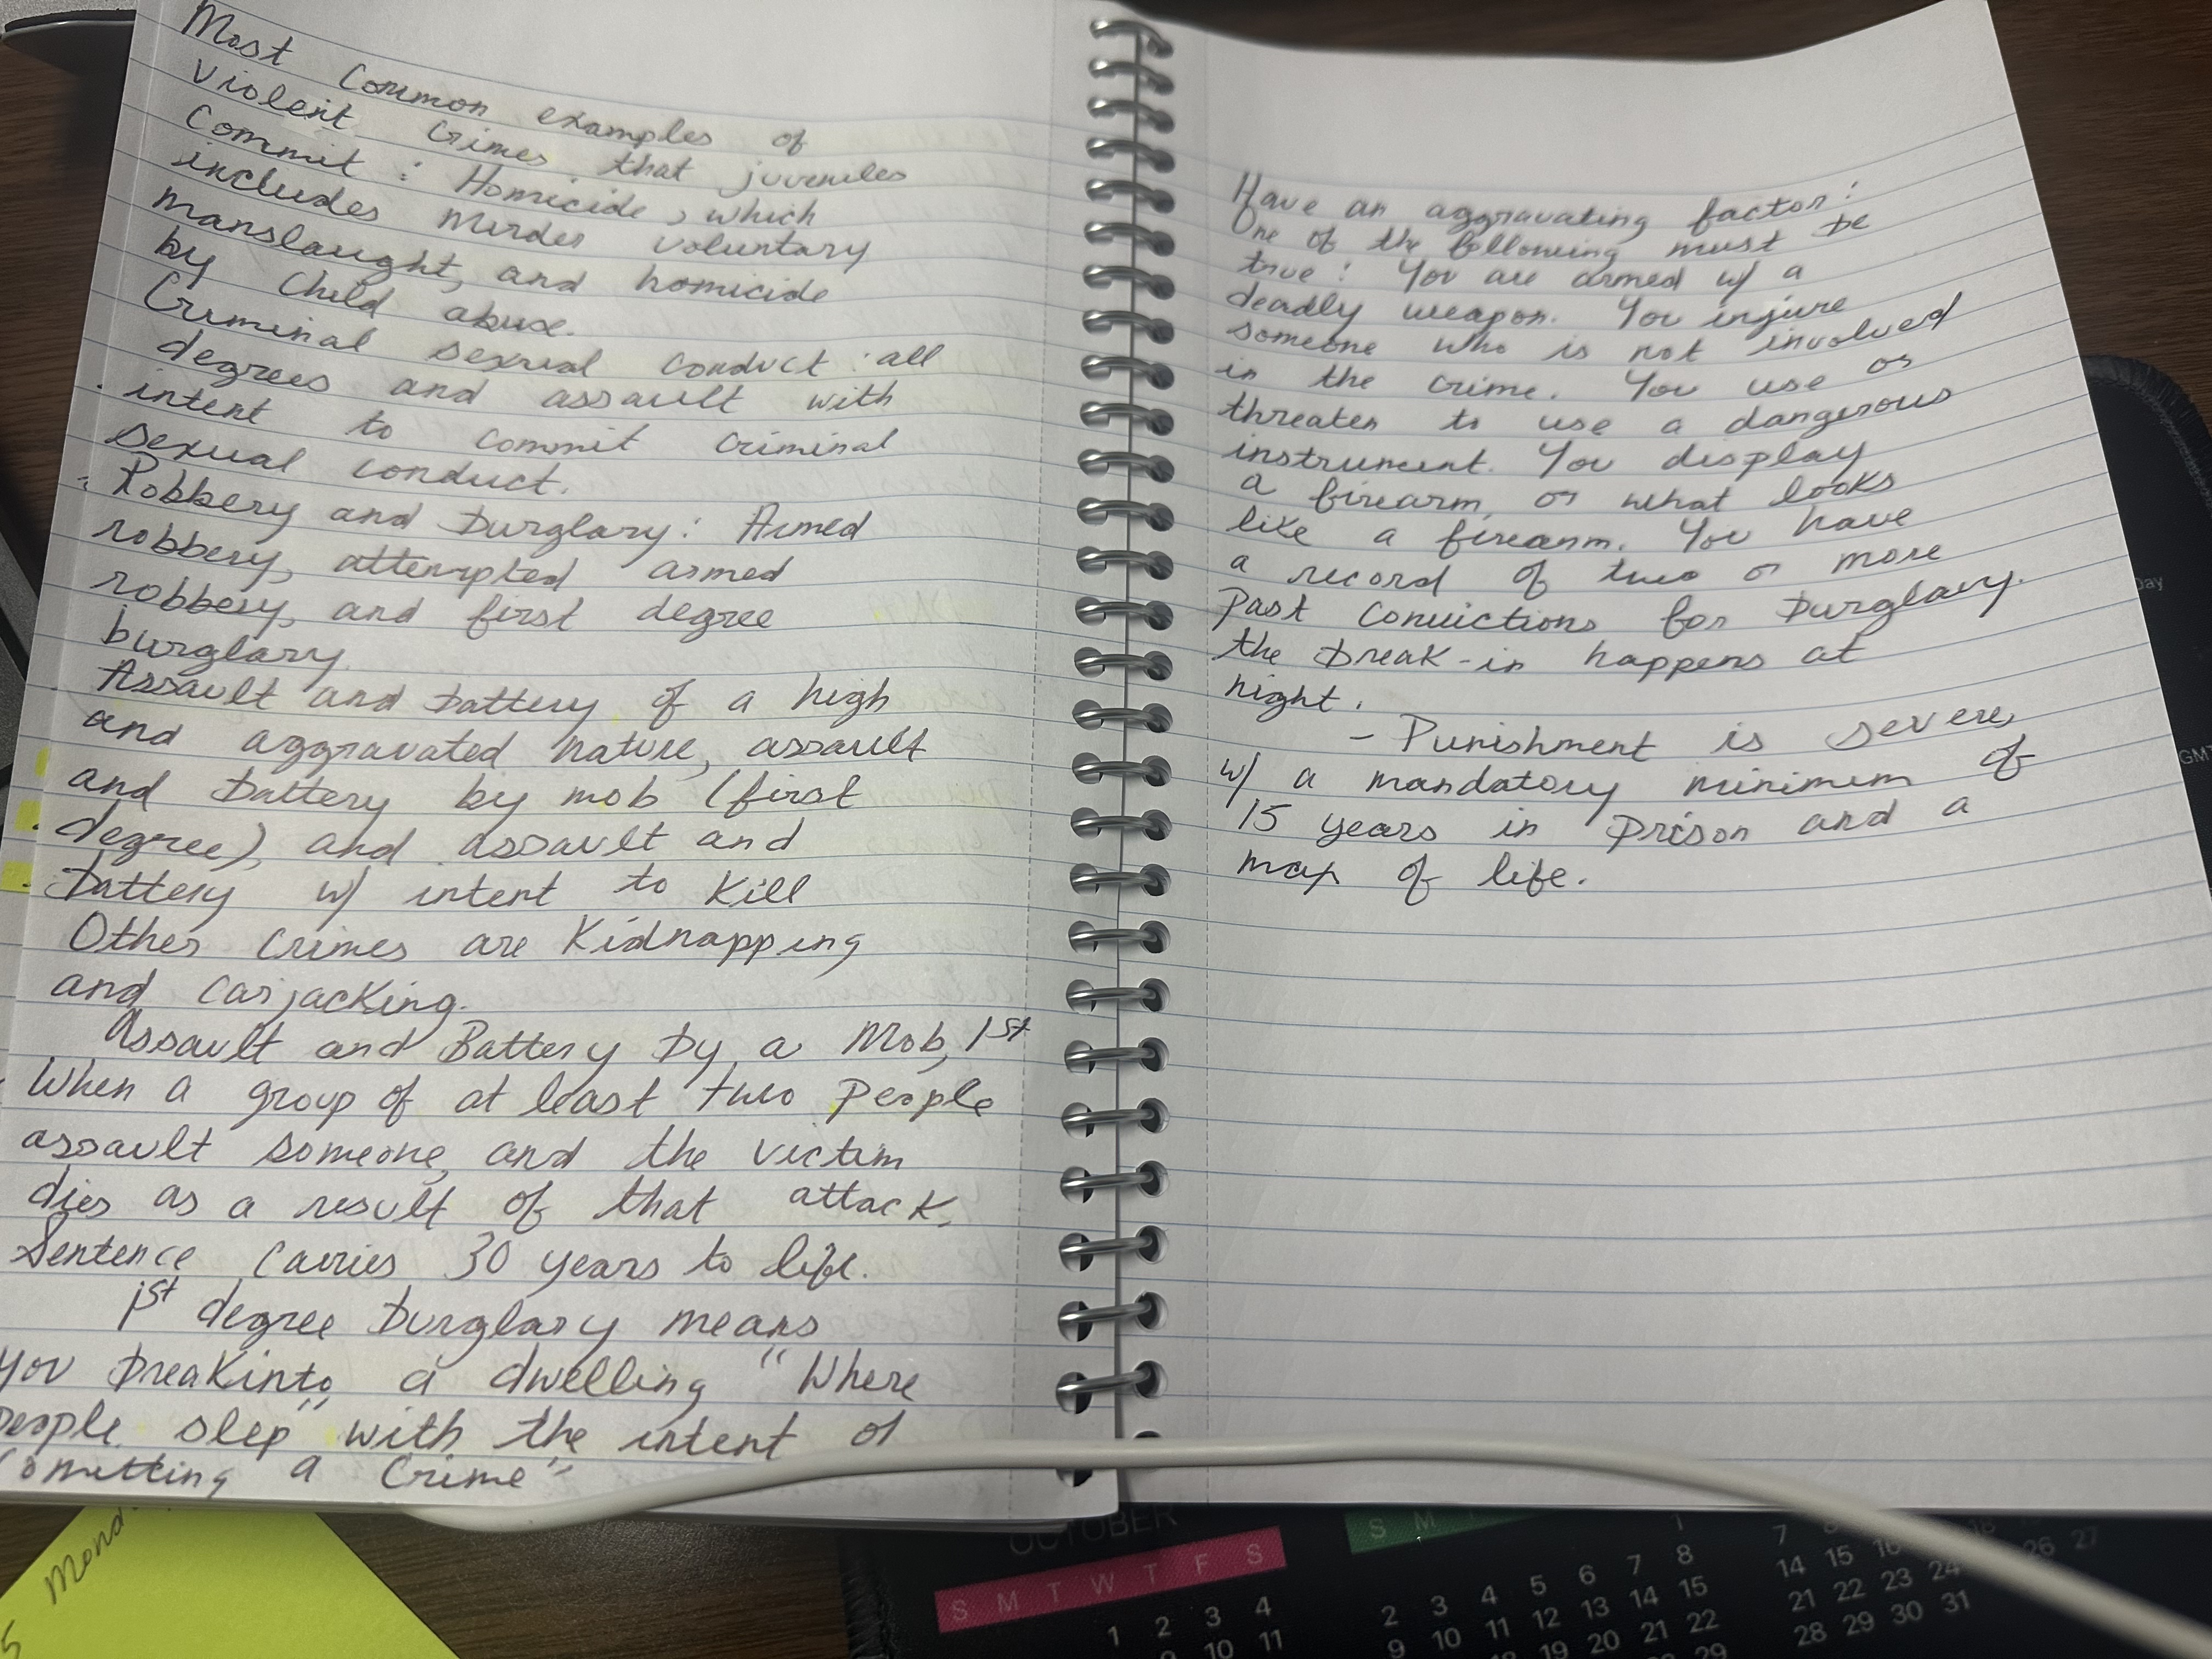 Most Common examples of
Violent Crimes that juveniles
Commit : Homicide, which
includes Murder voluntary
manslaught, and homicide
by Child abuse.
Criminal sexual conduct : all
degrees and assault with
intent to commit criminal
sexual conduct.
Robbery and burglary: Armed
robbery, attempted armed
robbery, and first degree
burglary.
Assault and battery of a high
and aggravated nature, assault
and battery by mob (first
degree), and assault and
battery w/ intent to Kill
Other crimes are Kidnapping
and carjacking.
Assault and Battery by a Mob, 1st
When a group of at least two people
assault someone, and the victim
dies as a result of that attack.
Sentence Carries 30 years to life.
1st degree burglary means
you break into a dwelling "Where
people slep" with the intent of
Comitting a Crime"
Have an aggravating factor:
One of the following must be
true: You are armed w/ a
deadly weapon. You injure
someone who is not involved
in the crime. You use or
threaten to use a dangerous
instrument. You display
a firearm, or what looks
like a firearm. You have
a record of two or more
past convictions for burglary.
the break-in happens at
night.
- Punishment is severe,
w/ a mandatory minimum of
15 years in prison and a
max of life.
Mond
5
Day
GMT
OCTOBER
S M T W T F S
1 2 3 4
9 10 11
S M T
1
2 3 4 5 6 7 8
9 10 11 12 13 14 15
18 19 20 21 22
29
7 8
14 15 16 18
21 22 23 24 26 27
28 29 30 31